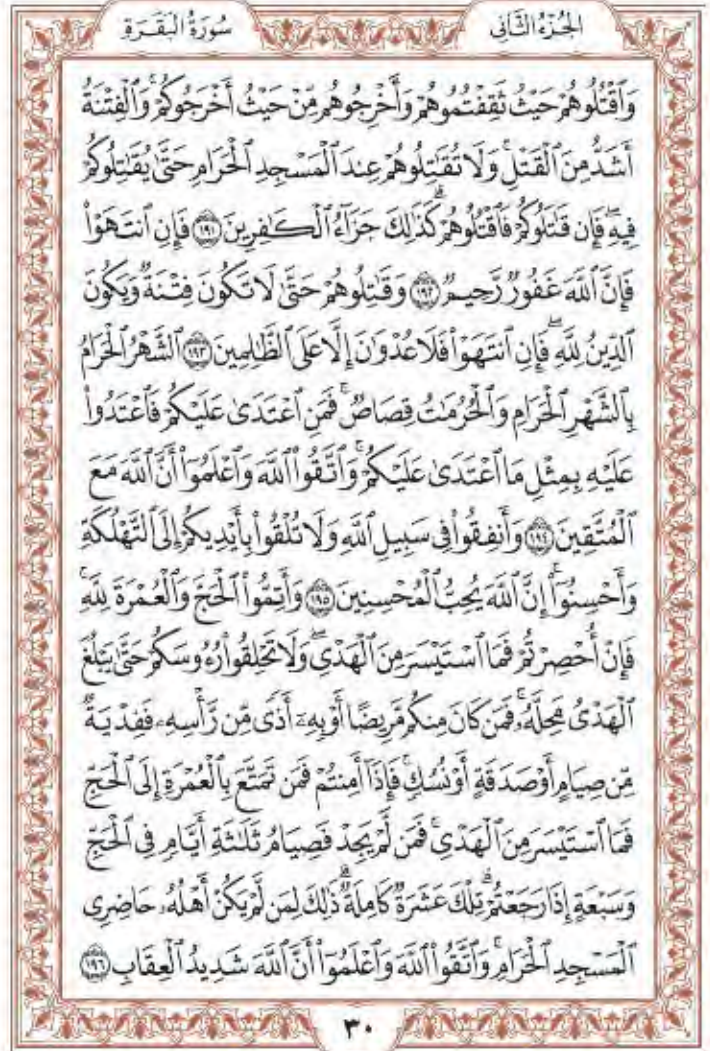 سُورَةُ الْبَقَرَةِ
الجُزْءُ الثَّانِى
وَٱقْتُلُوهُمْ حَيْثُ ثَقِفْتُمُوهُمْ وَأَخْرِجُوهُم مِّنْ حَيْثُ أَخْرَجُوكُمْ ۚ وَٱلْفِتْنَةُ
أَشَدُّ مِنَ ٱلْقَتْلِ ۚ وَلَا تُقَـٰتِلُوهُمْ عِندَ ٱلْمَسْجِدِ ٱلْحَرَامِ حَتَّىٰ يُقَـٰتِلُوكُمْ
فِيهِ ۖ فَإِن قَـٰتَلُوكُمْ فَٱقْتُلُوهُمْ ۗ كَذَٰلِكَ جَزَآءُ ٱلْكَـٰفِرِينَ ١٩١ فَإِنِ ٱنتَهَوْا۟
فَإِنَّ ٱللَّهَ غَفُورٌ رَّحِيمٌ ١٩٢ وَقَـٰتِلُوهُمْ حَتَّىٰ لَا تَكُونَ فِتْنَةٌ وَيَكُونَ
ٱلدِّينُ لِلَّهِ ۖ فَإِنِ ٱنتَهَوْا۟ فَلَا عُدْوَٰنَ إِلَّا عَلَى ٱلظَّـٰلِمِينَ ١٩٣ ٱلشَّهْرُ ٱلْحَرَامُ
بِٱلشَّهْرِ ٱلْحَرَامِ وَٱلْحُرُمَـٰتُ قِصَاصٌ ۚ فَمَنِ ٱعْتَدَىٰ عَلَيْكُمْ فَٱعْتَدُوا۟
عَلَيْهِ بِمِثْلِ مَا ٱعْتَدَىٰ عَلَيْكُمْ ۚ وَٱتَّقُوا۟ ٱللَّهَ وَٱعْلَمُوٓا۟ أَنَّ ٱللَّهَ مَعَ
ٱلْمُتَّقِينَ ١٩٤ وَأَنفِقُوا۟ فِى سَبِيلِ ٱللَّهِ وَلَا تُلْقُوا۟ بِأَيْدِيكُمْ إِلَى ٱلتَّهْلُكَةِ ۛ
وَأَحْسِنُوٓا۟ ۛ إِنَّ ٱللَّهَ يُحِبُّ ٱلْمُحْسِنِينَ ١٩٥ وَأَتِمُّوا۟ ٱلْحَجَّ وَٱلْعُمْرَةَ لِلَّهِ ۚ
فَإِنْ أُحْصِرْتُمْ فَمَا ٱسْتَيْسَرَ مِنَ ٱلْهَدْىِ ۖ وَلَا تَحْلِقُوا۟ رُءُوسَكُمْ حَتَّىٰ يَبْلُغَ
ٱلْهَدْىُ مَحِلَّهُۥ ۚ فَمَن كَانَ مِنكُم مَّرِيضًا أَوْ بِهِۦٓ أَذًى مِّن رَّأْسِهِۦ فَفِدْيَةٌ
مِّن صِيَامٍ أَوْ صَدَقَةٍ أَوْ نُسُكٍ ۚ فَإِذَآ أَمِنتُمْ فَمَن تَمَتَّعَ بِٱلْعُمْرَةِ إِلَى ٱلْحَجِّ
فَمَا ٱسْتَيْسَرَ مِنَ ٱلْهَدْىِ ۚ فَمَن لَّمْ يَجِدْ فَصِيَامُ ثَلَـٰثَةِ أَيَّامٍ فِى ٱلْحَجِّ
وَسَبْعَةٍ إِذَا رَجَعْتُمْ ۗ تِلْكَ عَشَرَةٌ كَامِلَةٌ ۗ ذَٰلِكَ لِمَن لَّمْ يَكُنْ أَهْلُهُۥ حَاضِرِى
ٱلْمَسْجِدِ ٱلْحَرَامِ ۚ وَٱتَّقُوا۟ ٱللَّهَ وَٱعْلَمُوٓا۟ أَنَّ ٱللَّهَ شَدِيدُ ٱلْعِقَابِ ١٩٦
٣٠